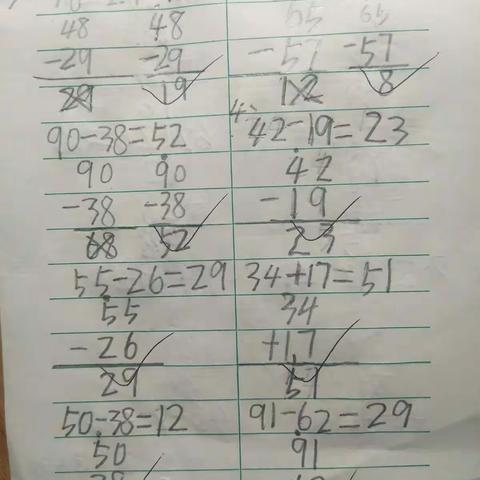 48 48
-29 -29
19
90-38=52
90 90
-38 -38
68 52
55-26=29
55
-26
29
50-38=12
50
55 65
-57 -57
12 8
42-19=23
42
-19
23
34+17=51
34
+17
51
91-62=29
91